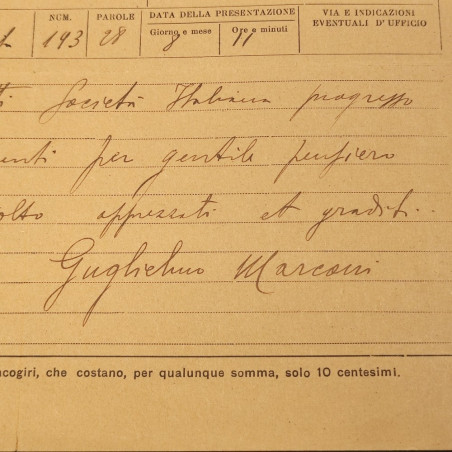 NUM. PAROLE DATA DELLA PRESENTAZIONE VIA E INDICAZIONI
Giorno e mese Ore e minuti EVENTUALI D'UFFICIO
193 28 8 11
Società Italiana progresso
per gentile pensiero
apprezzati et graditi..
Guglielmo Marconi
ncogiri, che costano, per qualunque somma, solo 10 centesimi.